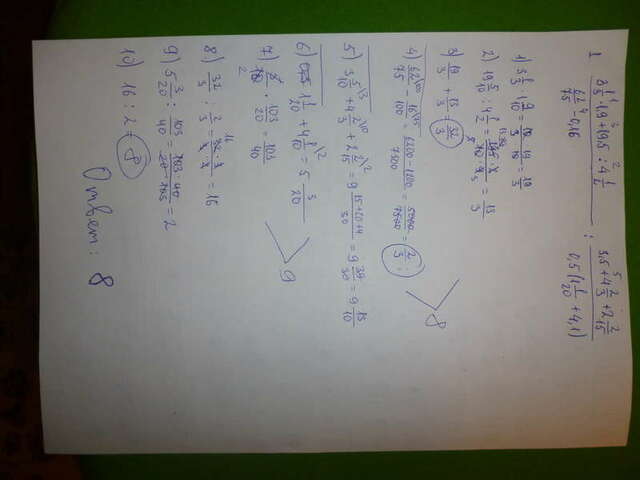 1 (3 1/3 · 1,9 + 19,5 : 4 1/2) / (62/75 − 0,16) : (3,5 + 4 2/3 + 2 2/15) / (0,5 (1 1/20 + 4,1))
1) 3 1/3 · 1 9/10 = 10/3 · 19/10 = 19/3
2) 19 5/10 : 4 1/2 = 195 · 2 / 10 · 9 = 13/3
3) 19/3 + 13/3 = 32/3
4) 62/75 − 16/100 = 6200 − 1200 / 7500 = 5000/7500 = 2/3 ;
8
5) 3 5/10 + 4 2/3 + 2 2/15 = 9 15+20+4/30 = 9 39/30 = 9 13/10
6) 1 1/20 + 4 1/10 = 5 3/20
9
7) 5/10 · 103/20 = 103/40
8) 32/3 : 2/3 = 32 · 3 / 3 · 2 = 16
9) 5 3/20 : 103/40 = 103 · 40 / 20 · 103 = 2
10) 16 : 2 = 8
Ответ: 8